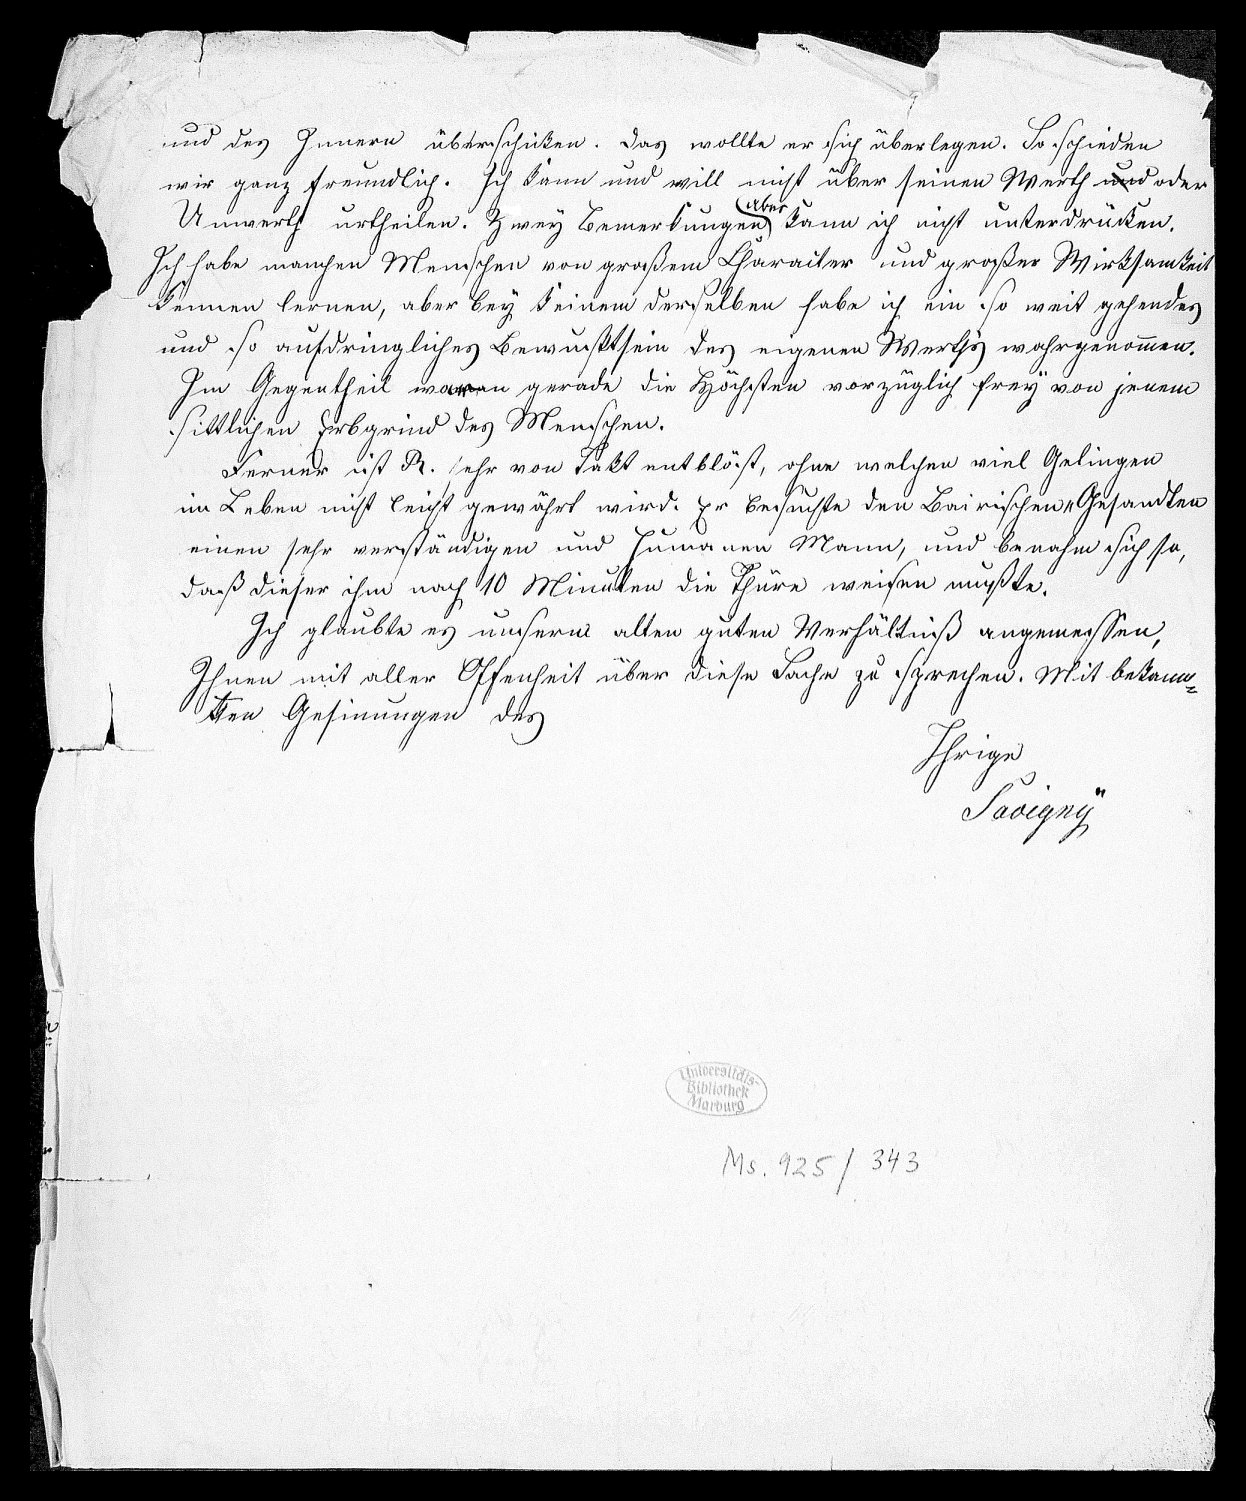 und des Innern überschicken. Das wollte er sich überlegen. So schieden
wir ganz freundlich. Ich kann und will nicht über seinen Werth und oder
Unwerth urtheilen. Zwey Bemerkungen aber kann ich nicht unterdrücken.
Ich habe manchen Menschen von großem Character und großer Wirksamkeit
kennen lernen, aber bey keinem derselben habe ich ein so weit gehendes
und so aufdringliches Bewußtsein des eigenen Werths wahrgenommen.
Im Gegentheil waren gerade die Höchsten vorzüglich frey von jenem
sittlichen Erbgrind des Menschen.
Ferner ist R. sehr von Takt entblöst, ohne welchen viel Gelingen
im Leben nicht leicht gewährt wird. Er besuchte den Bairischen Gesandten
einen sehr verständigen und humanen Mann, und benahm sich so,
daß dieser ihm nach 10 Minuten die Thüre weisen mußte.
Ich glaubte es unserm alten guten Verhältniß angemessen,
Ihnen mit aller Offenheit über diese Sache zu sprechen. Mit bekann=
ten Gesinungen des
Ihrige
Savigny"
Universitäts-
Bibliothek
Marburg
Ms. 925/343